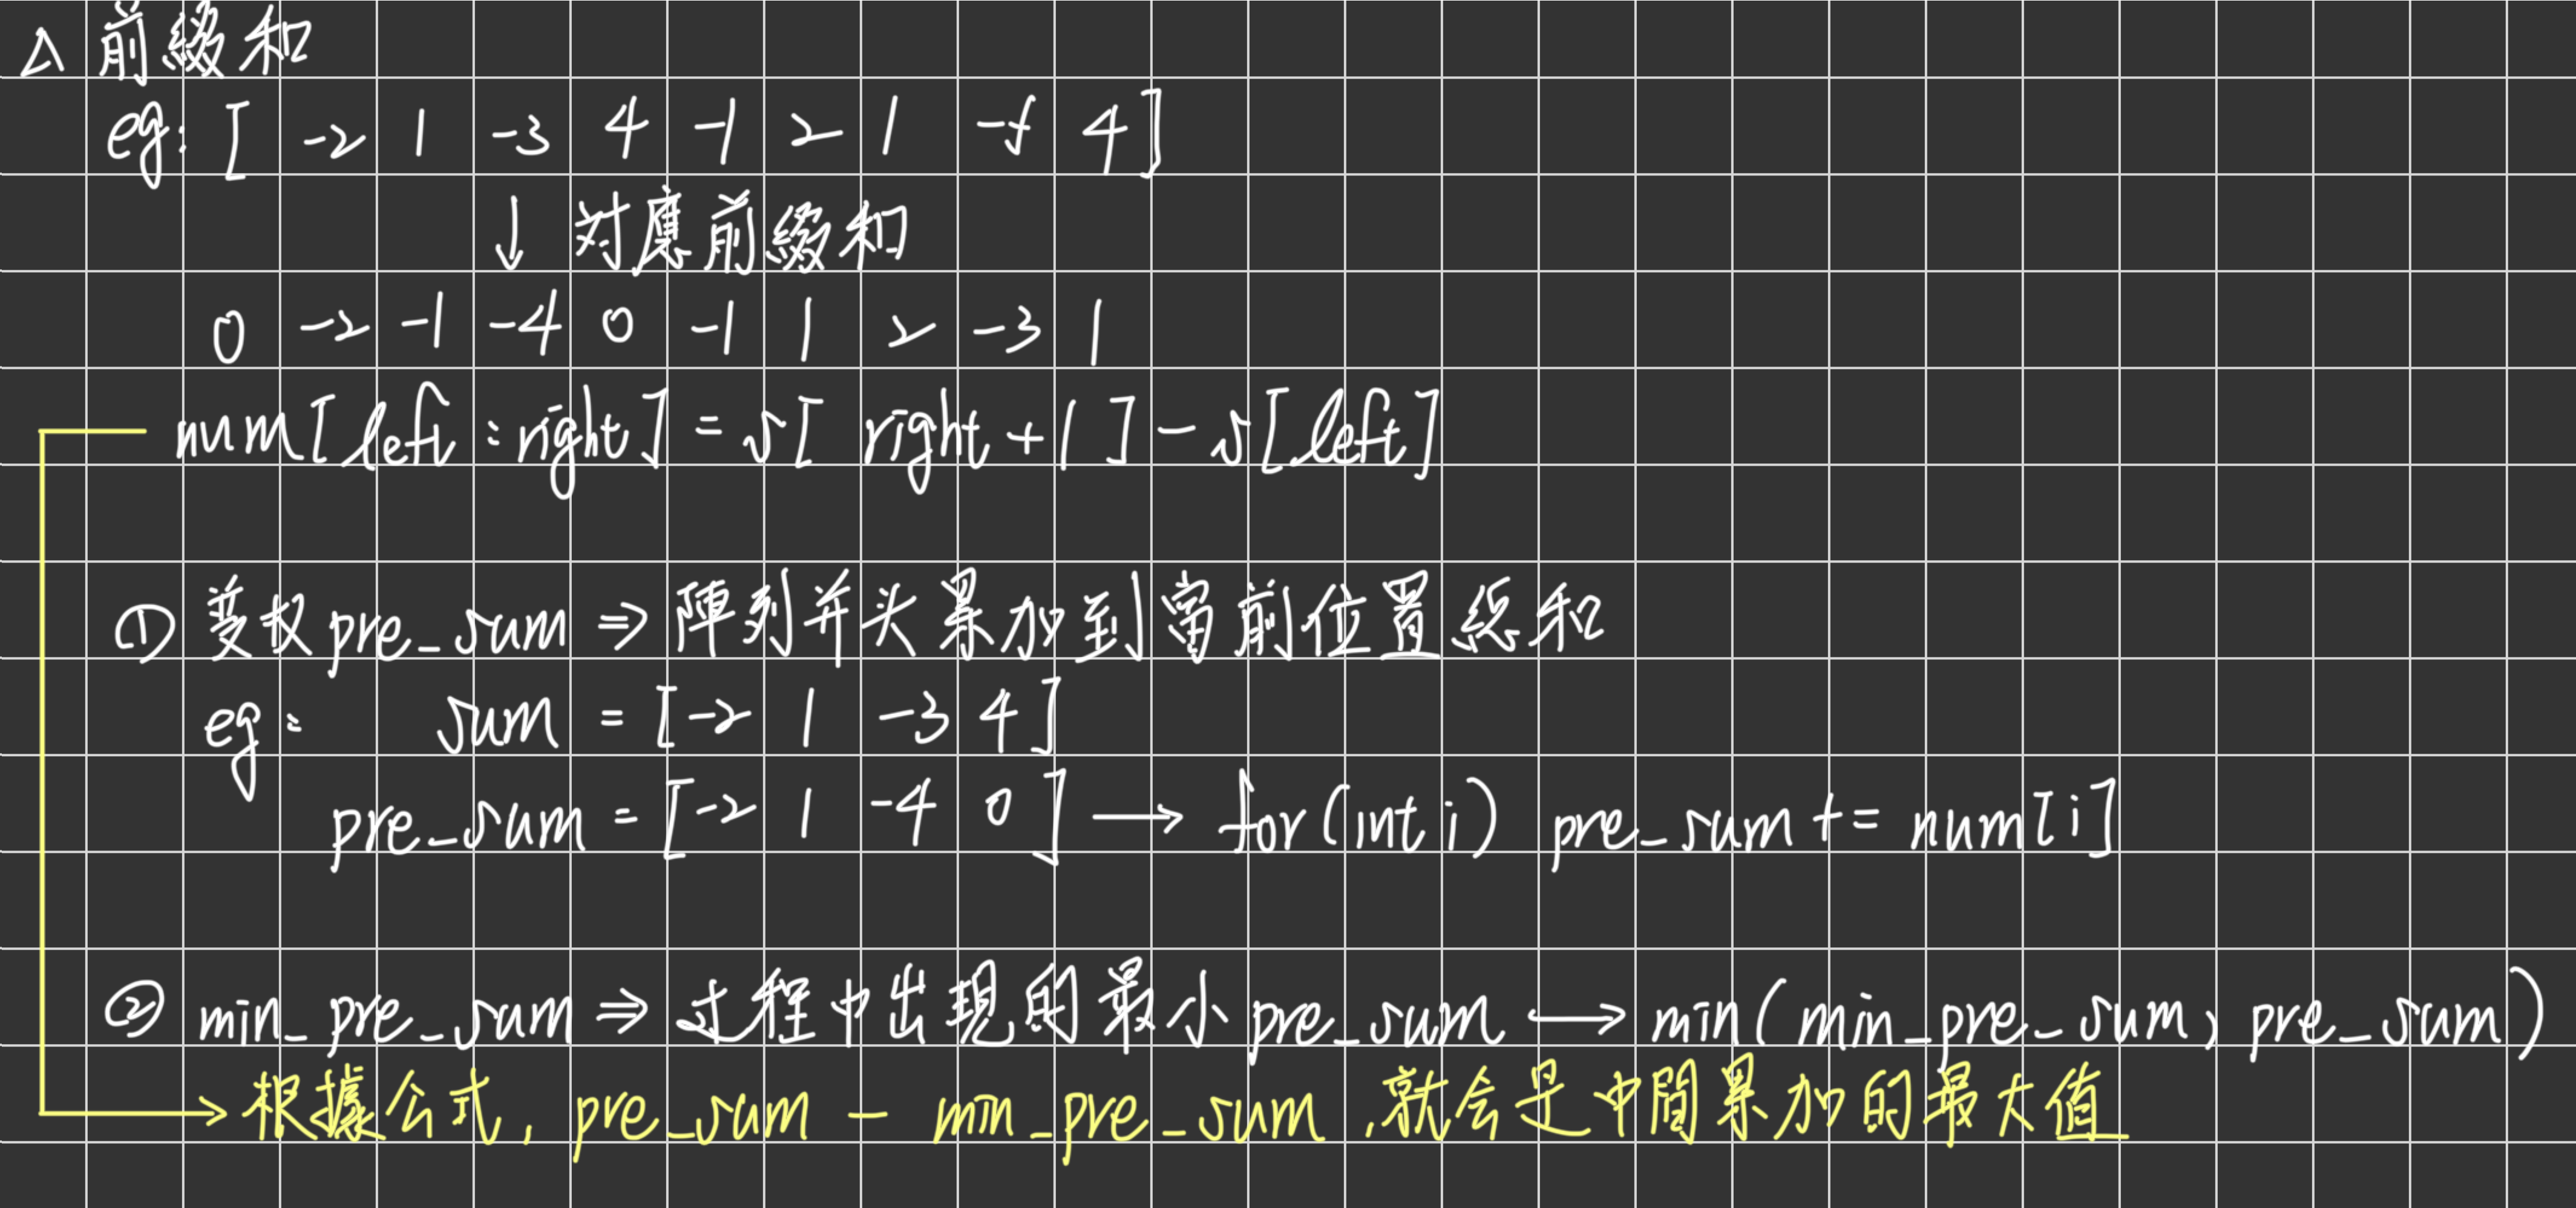 △ 前綴和
eg: [ -2 1 -3 4 -1 2 1 -5 4 ]
↓ 対應前綴和
0 -2 -1 -4 0 -1 1 2 -3 1
num[left : right] = s[ right + 1 ] - s[left]
① 变权 pre_sum ⇒ 陣列并头累加到當前位置総和
eg: sum = [-2 1 -3 4]
pre_sum = [-2 1 -4 0] → for(int i) pre_sum += num[i]
② min_pre_sum ⇒ 过程中出現的最小pre_sum → min(min_pre_sum, pre_sum)
→ 根據公式, pre_sum - min_pre_sum ,就会是中間累加的最大值